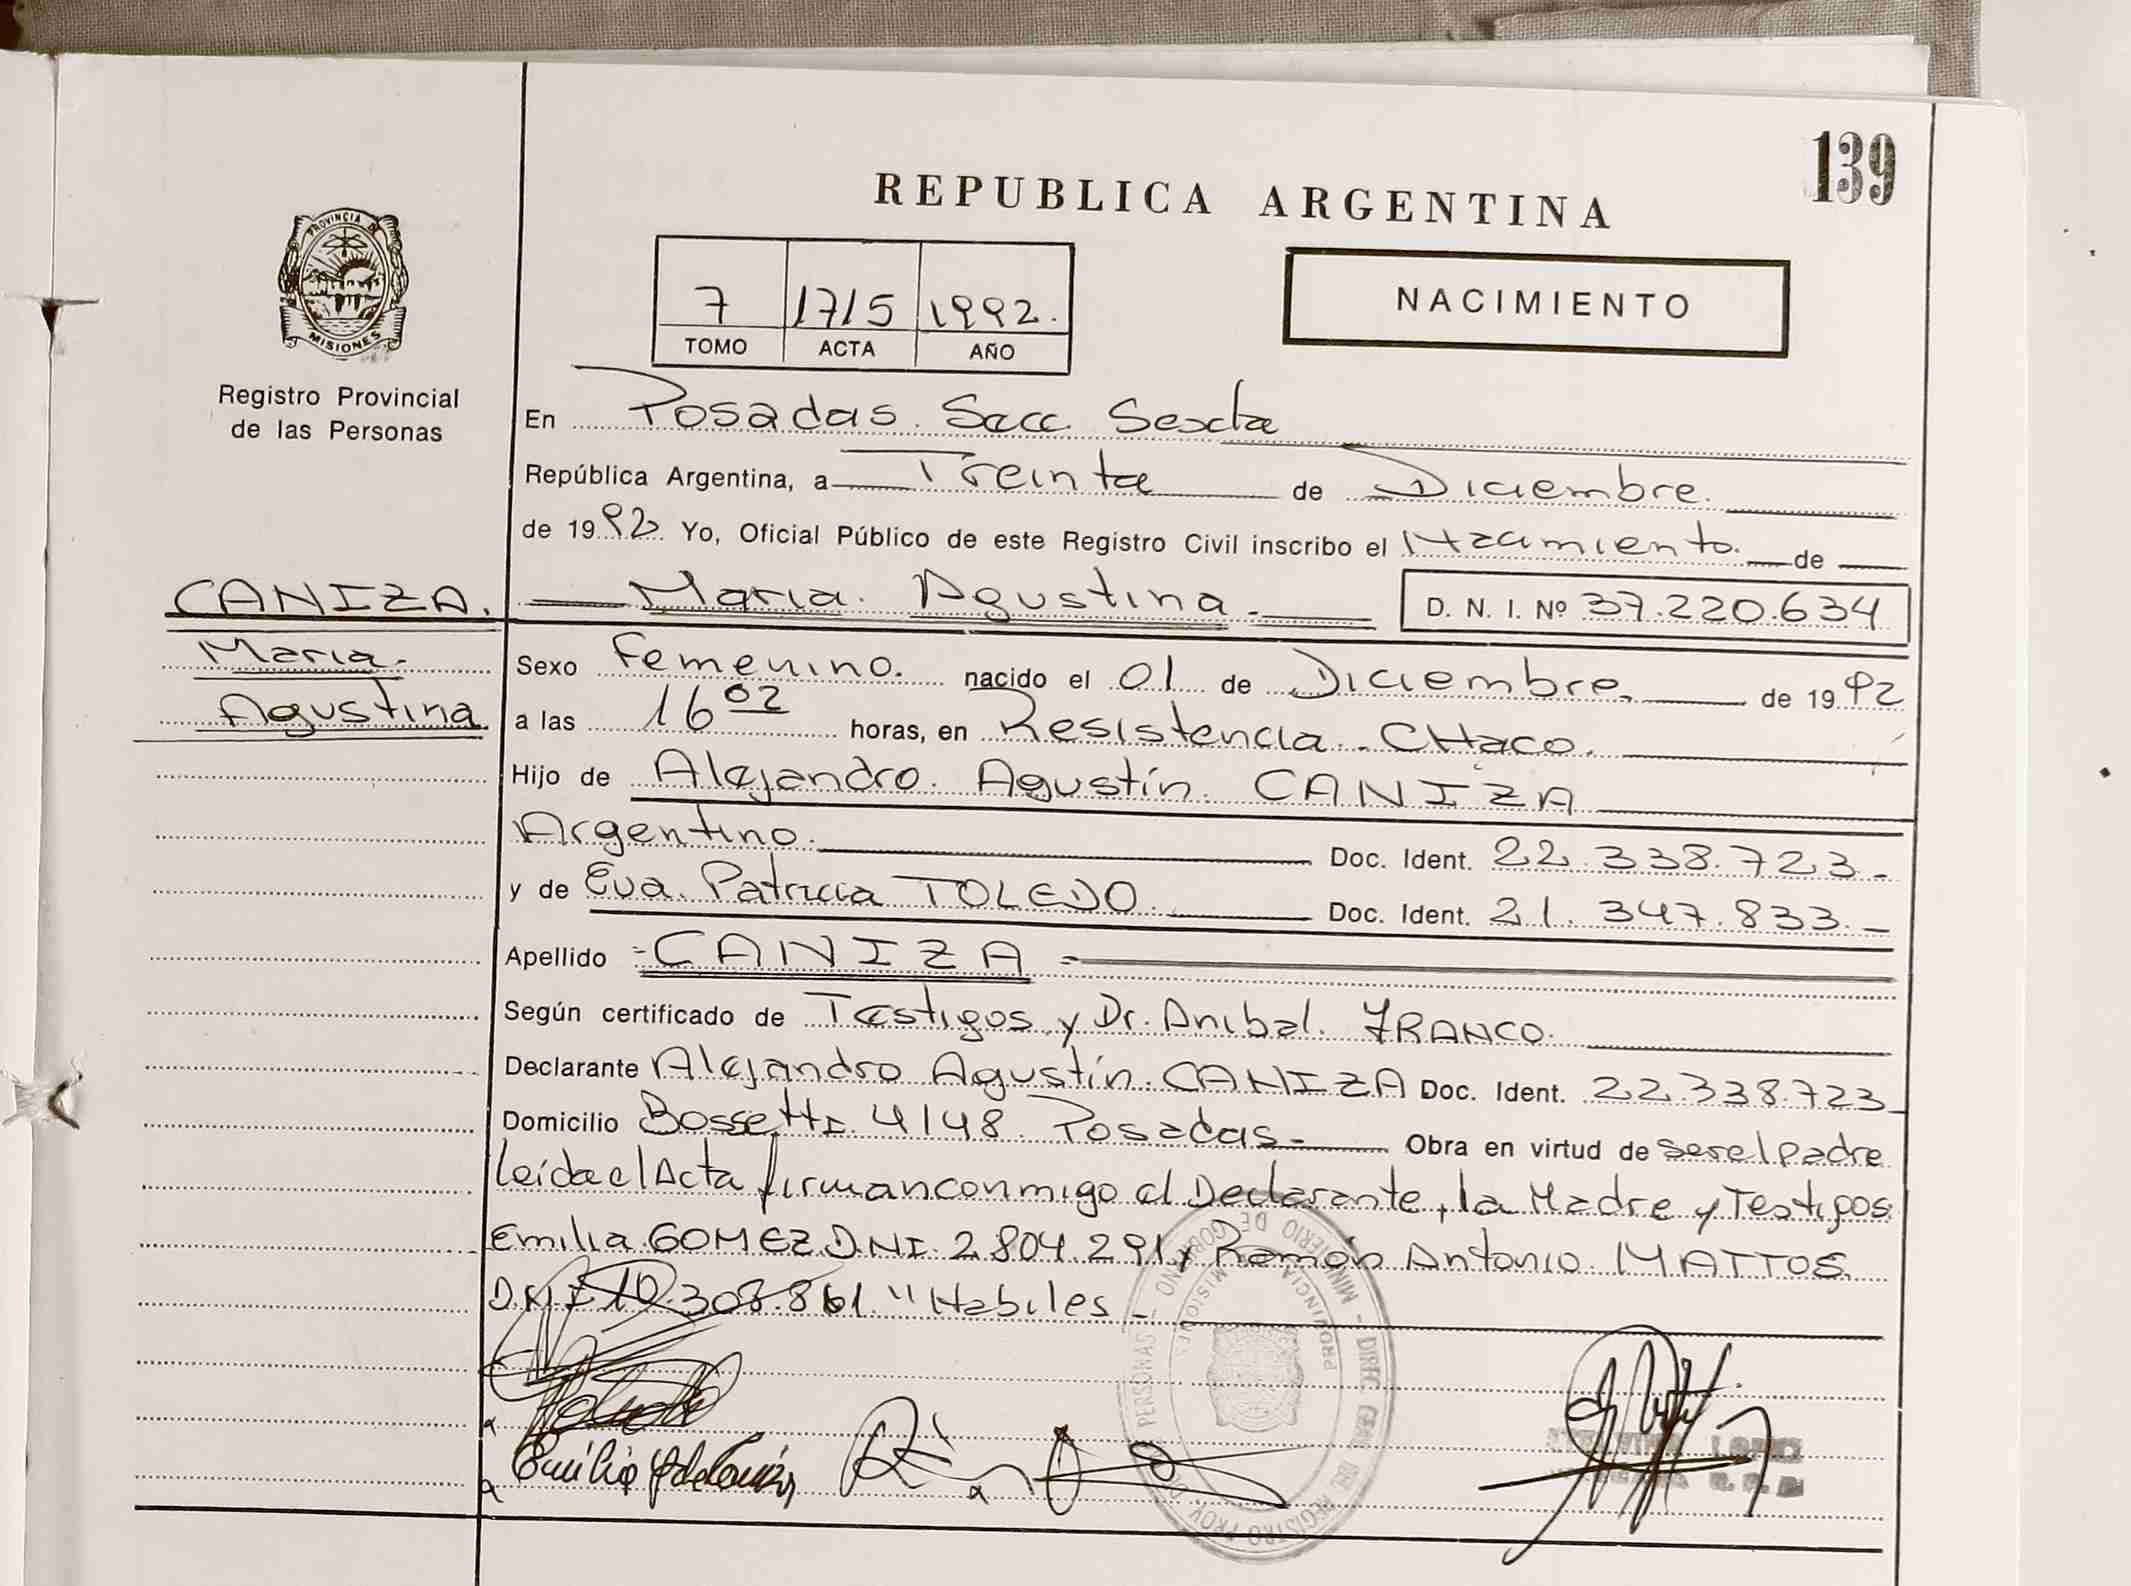 139
REPUBLICA ARGENTINA
PROVINCIA DE
MISIONES
Registro Provincial
de las Personas
7 1715 1992.
TOMO ACTA AÑO
NACIMIENTO
En Posadas. Secc. Sexta
República Argentina, a Treinta de Diciembre.
de 1992 Yo, Oficial Público de este Registro Civil inscribo el Nacimiento. de
CANIZA.
Maria.
Agustina
Maria. Agustina. D. N. I. Nº 37.220.634
Sexo Femenino. nacido el 01 de Diciembre. de 1992
a las 16 02 horas, en Resistencia. CHaco.
Hijo de Alejandro. Agustín. CANIZA
Argentino. Doc. Ident. 22.338.723.-
y de Eva. Patricia TOLEDO. Doc. Ident. 21.347.833.-
Apellido =CANIZA=
Según certificado de Testigos y Dr. Anibal. FRANCO.
Declarante Alejandro Agustín. CANIZA Doc. Ident. 22.338.723
Domicilio Bossetti. 4148. Posadas.- Obra en virtud de ser el padre
Leida el Acta firman conmigo el Declarante, la Madre y Testigos
Emilia. GOMEZ. D.NI. 2.804.291 y Ramón Antonio. MATTOS.
D.N.I 10.308.861. "Habiles-
MINISTERIO DE GOBIERNO - DIREC. GRAL. DEL REGISTRO PROV. DE PERSONAS -
PROVINCIA MISIONES
LOPEZ